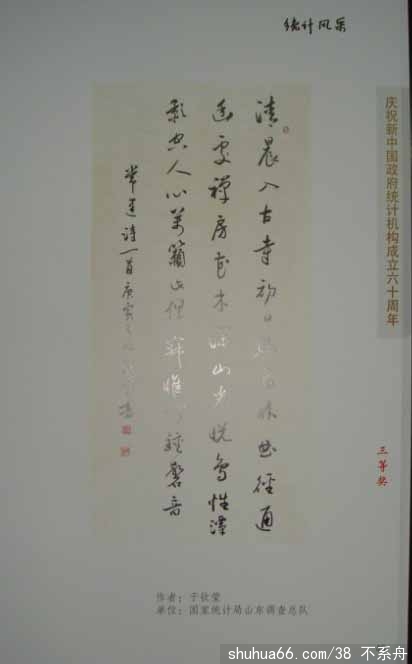 统计风采
庆祝新中国政府统计机构成立六十周年
三等奖
清晨入古寺初日照高林曲徑通
幽處禪房花木深山光悦鳥性潭
影空人心萬籟此俱寂惟聞鐘磬音
常建詩一首庚寅
作者：于钦
单位：国家统计局山东调查总队
shuhua66.com/38 不系舟